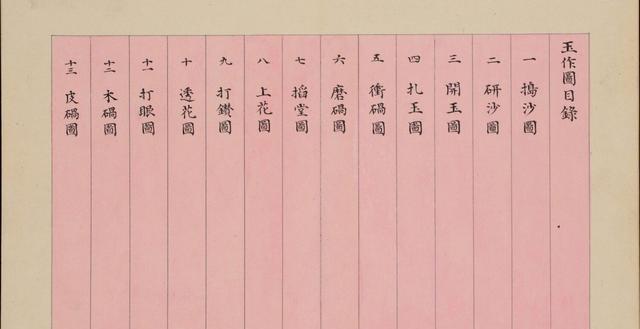 玉作圖目錄
一 搗沙圖
二 研沙圖
三 開玉圖
四 扎玉圖
五 衝碢圖
六 磨碢圖
七 掐堂圖
八 上花圖
九 打鑽圖
十 透花圖
十一 打眼圖
十二 木碢圖
十三 皮碢圖